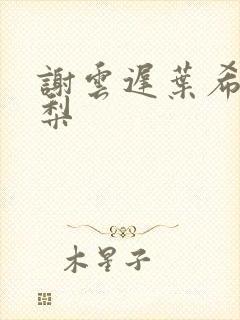 謝雲遲葉希
梨
木星子